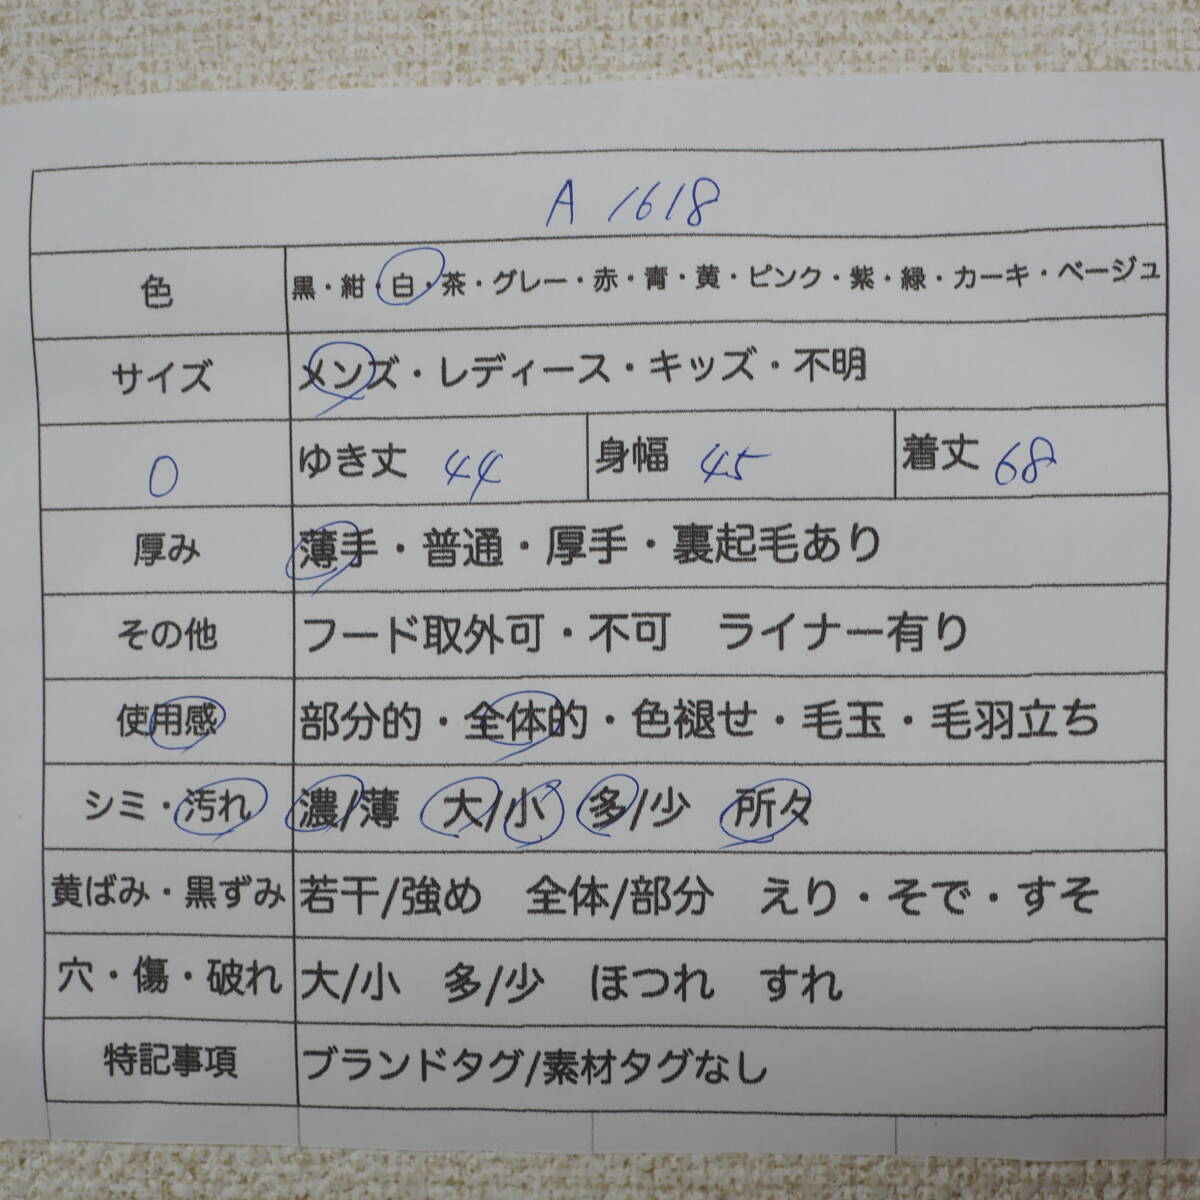 A 1618
色 黒・紺・白・茶・グレー・赤・青・黄・ピンク・紫・緑・カーキ・ベージュ
サイズ メンズ・レディース・キッズ・不明
0 ゆき丈 44 身幅 45 着丈 68
厚み 薄手・普通・厚手・裏起毛あり
その他 フード取外可・不可 ライナー有り
使用感 部分的・全体的・色褪せ・毛玉・毛羽立ち
シミ・汚れ 濃/薄 大/小 多/少 所々
黄ばみ・黒ずみ 若干/強め 全体/部分 えり・そで・すそ
穴・傷・破れ 大/小 多/少 ほつれ すれ
特記事項 ブランドタグ/素材タグなし